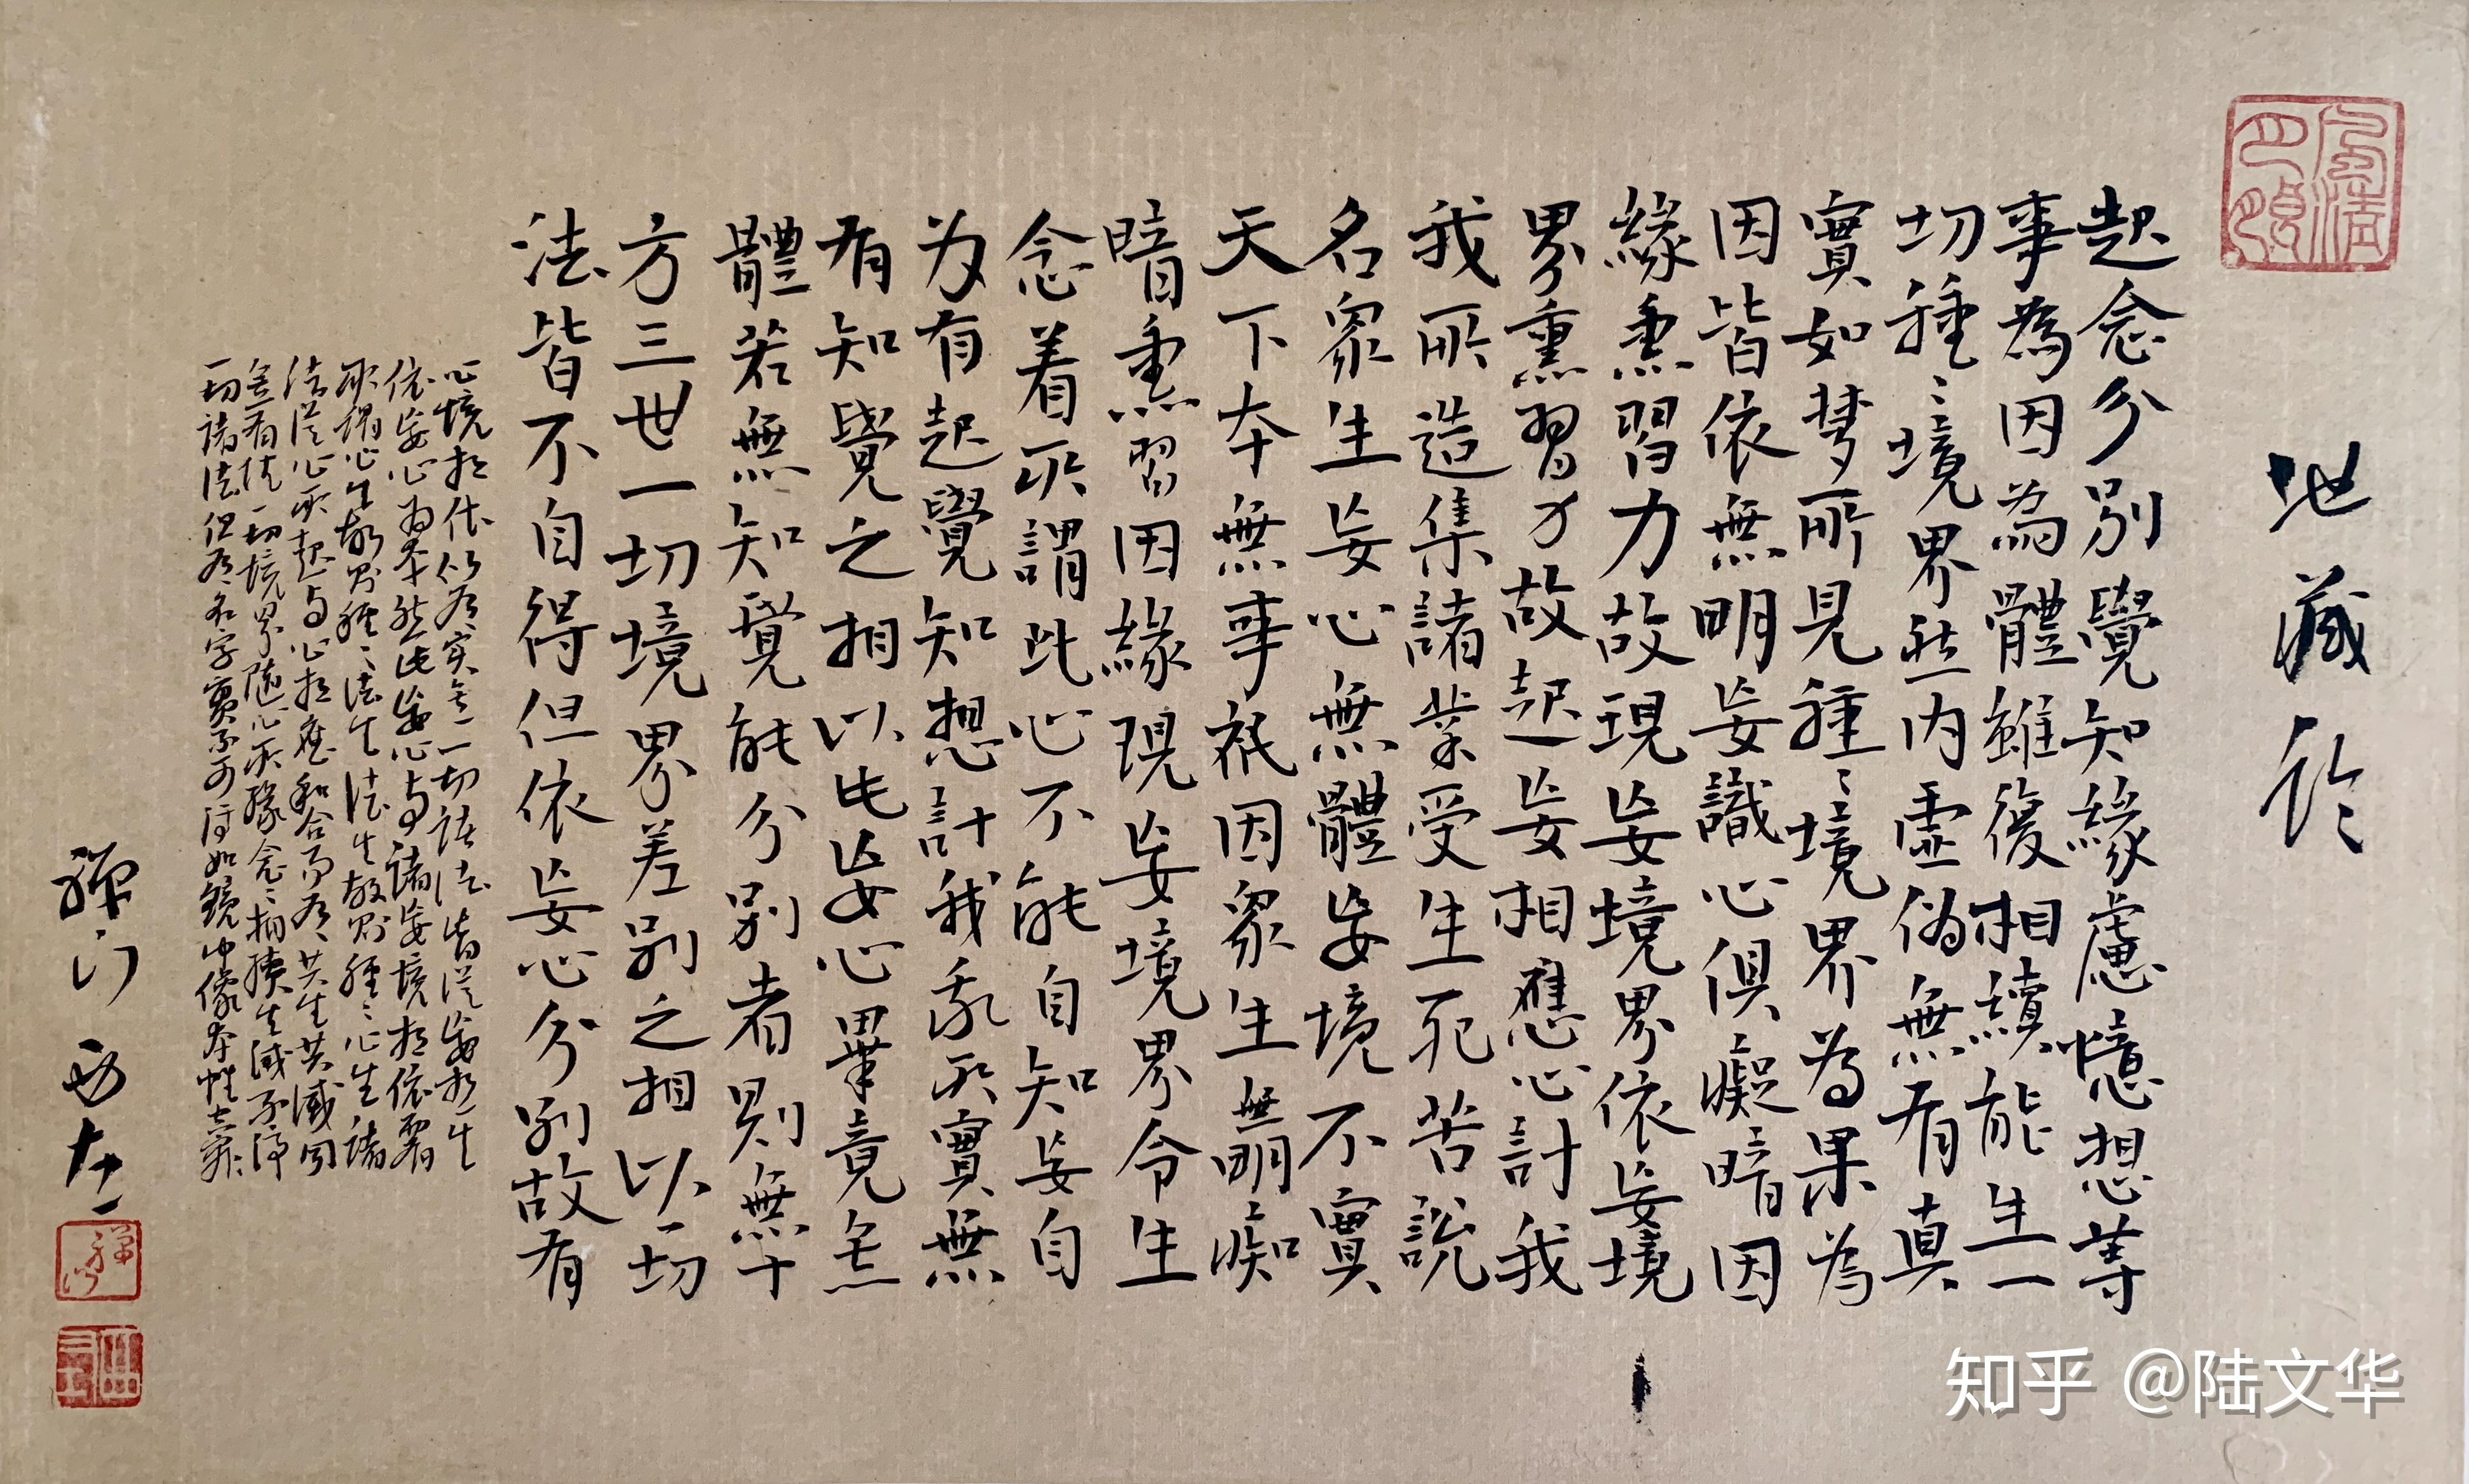 地藏於
起念分別覺知緣慮憶想等
事為因為體雖復相續能生一
切種〻境界然內虛偽無有真
實如夢所見種〻境界為果為
因皆依無明妄識心俱癡暗因
緣熏習力故現妄境界依妄境
界熏習力故起妄相應心計我
我所造集諸業受生死苦說
名眾生妄心無體妄境不實
天下本無事祇因眾生無明痴
暗熏習因緣現妄境界令生
念着所謂此心不能自知妄自
为有起覺知想計我我所實無
有知覺之相以此妄心畢竟無
體若無知覺能分別者則無十
方三世一切境界差別之相以一切
法皆不自得但依妄心分別故有
心境相依仍为实无一切諸法皆從妄想生
依妄心为本然此妄心与諸妄境相依看
所謂心生故則種〻法生法生故則種〻心生諸
法從心所起与心相應和合而为共生共滅同
無有住一切境界隨心所緣念〻相續生滅不停
一切諸法但为名字實不可得如鏡中像本性
禪门
知乎 @陆文华